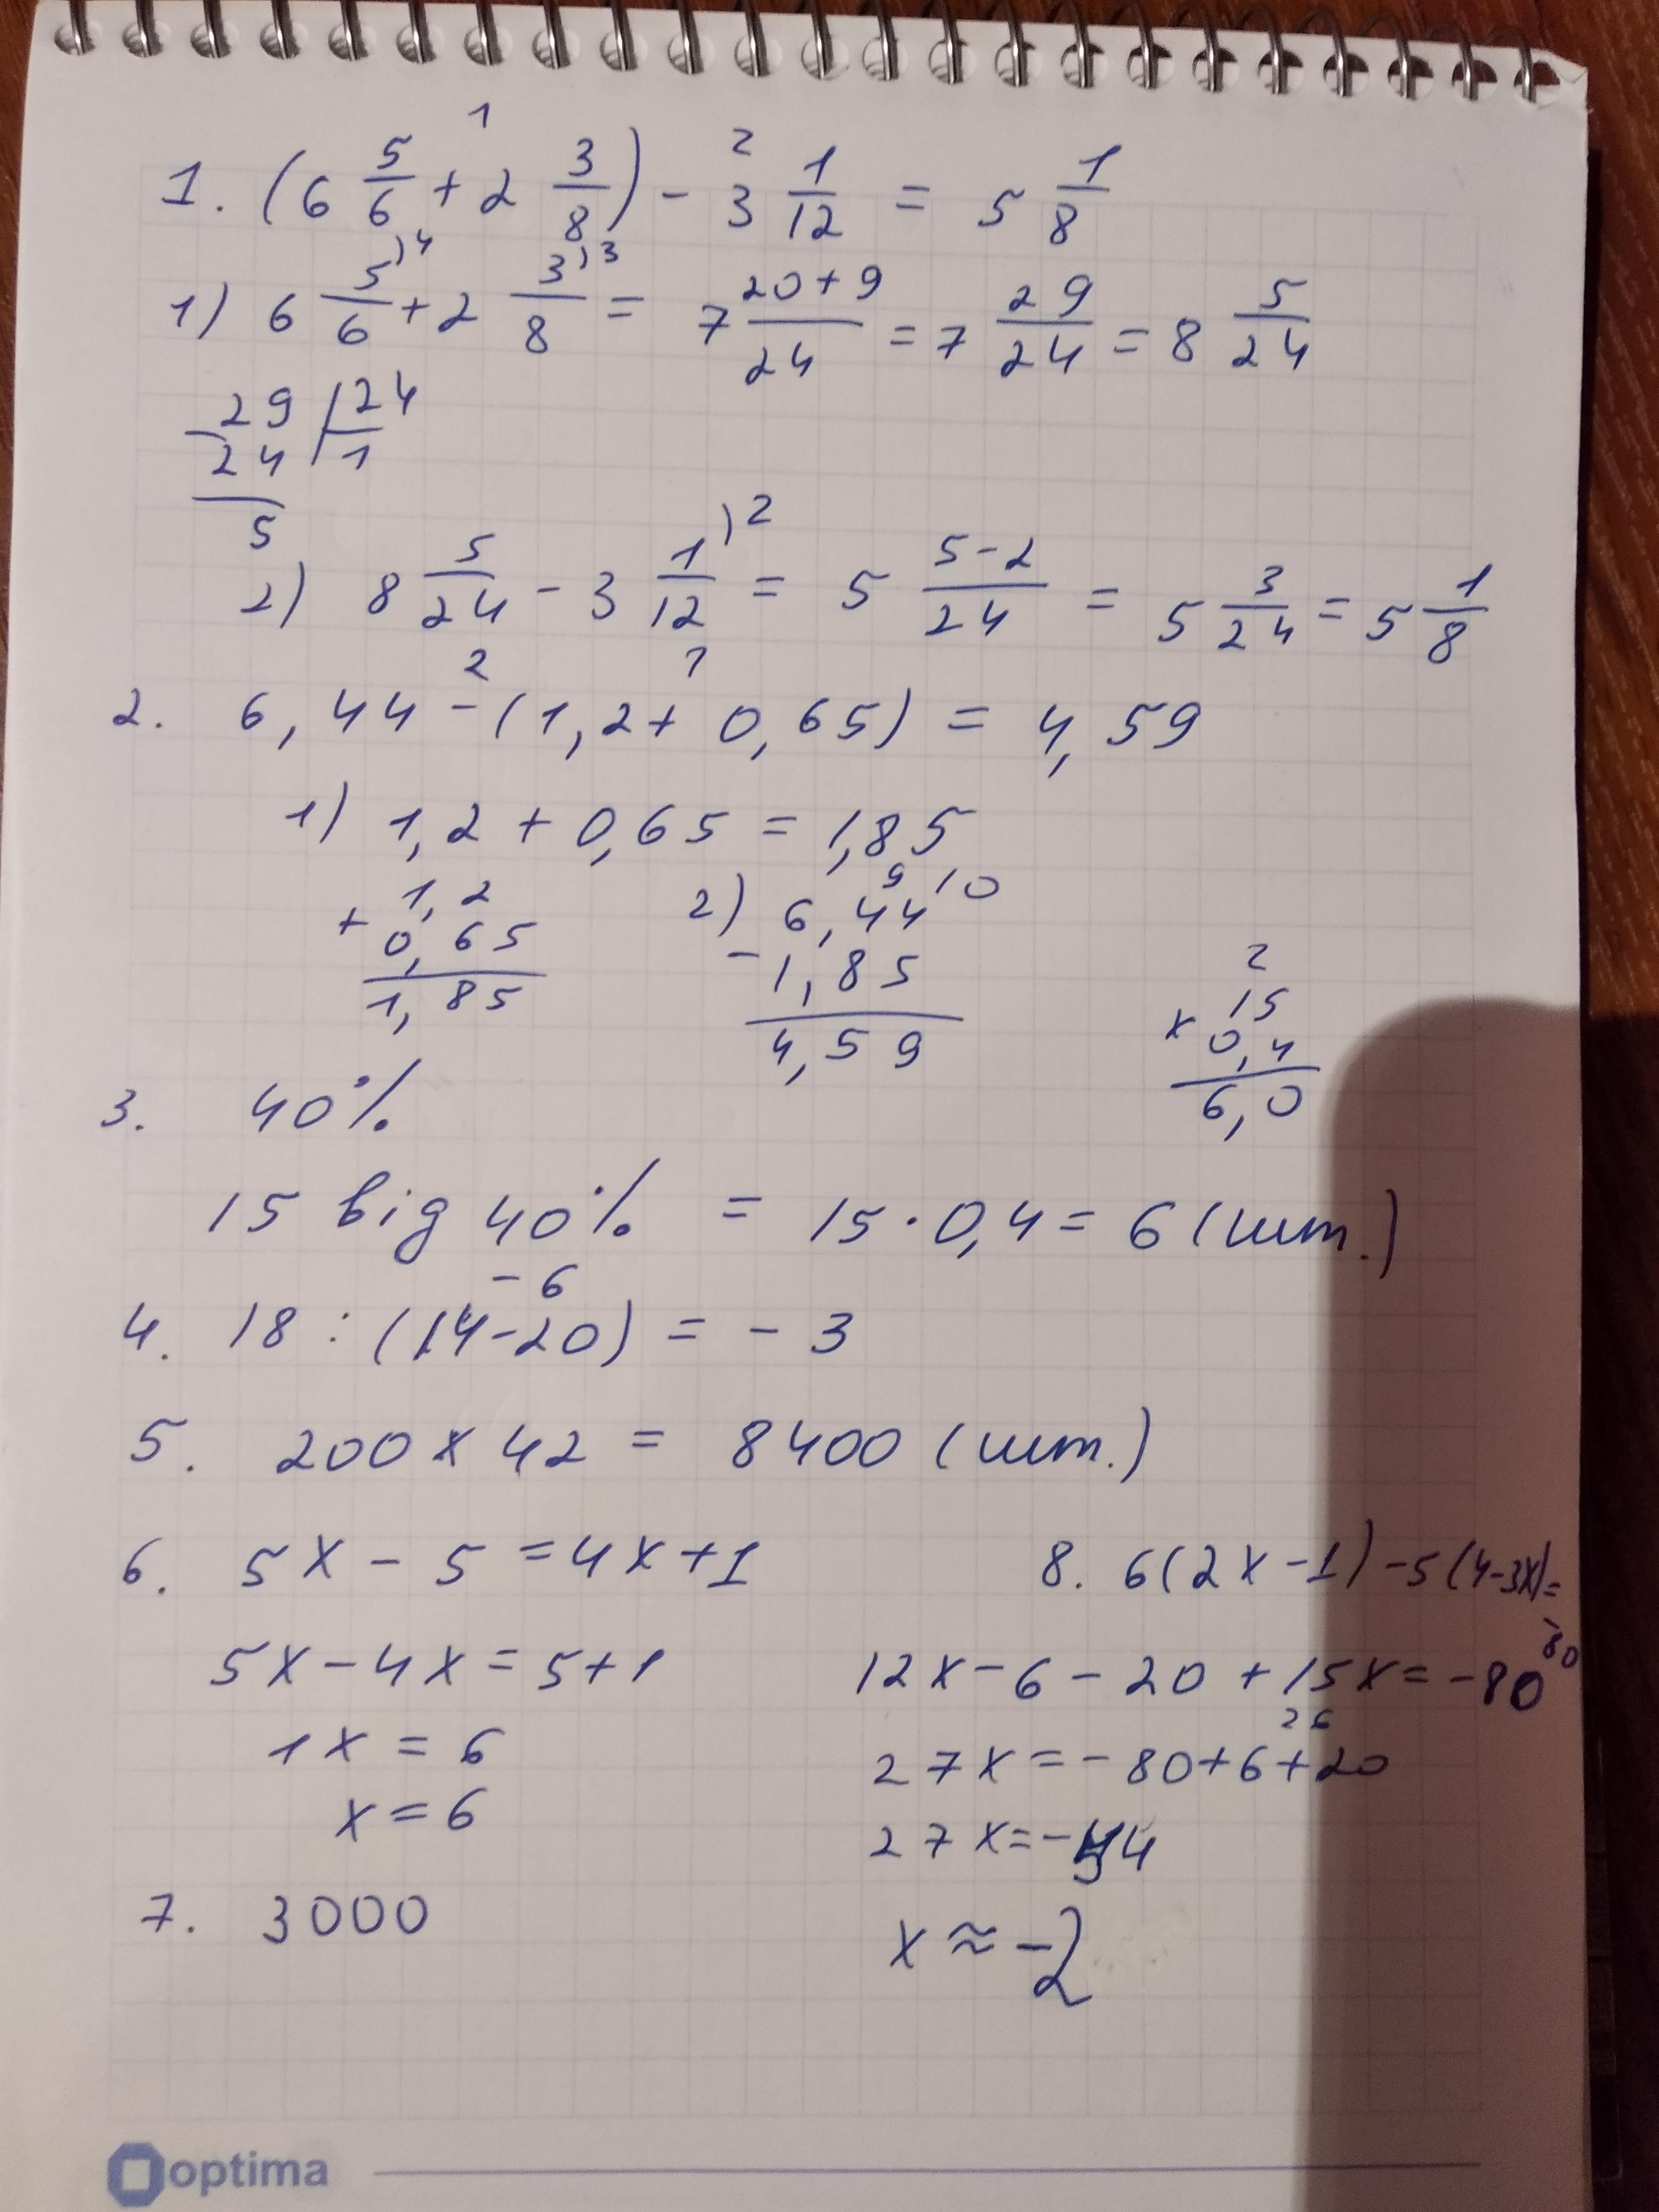 1. (6 5/6 + 2 3/8) - 3 1/12 = 5 1/8
1 2
1) 6 5/6 )4 + 2 3/8 )3 = 7 20+9/24 = 7 29/24 = 8 5/24
29 | 24
- 24 | 1
5
2) 8 5/24 - 3 1/12 )2 = 5 5-2/24 = 5 3/24 = 5 1/8
2 1
2. 6,44 - (1,2 + 0,65) = 4,59
1) 1,2 + 0,65 = 1,85
1,2
+ 0,65
1,85
9 10
2) 6,44
- 1,85
4,59
2
15
x 0,4
6,0
3. 40%
15 від 40% = 15 · 0,4 = 6 (шт.)
-6
4. 18 : (14-20) = -3
5. 200 x 42 = 8400 (шт.)
6. 5x - 5 = 4x + 1
5x - 4x = 5 + 1
1x = 6
x = 6
7. 3000
8. 6(2x - 1) - 5(4-3x) =
-80
12x - 6 - 20 + 15x = -80
26
27x = -80 + 6 + 20
27x = -54
x ≈ -2
optima